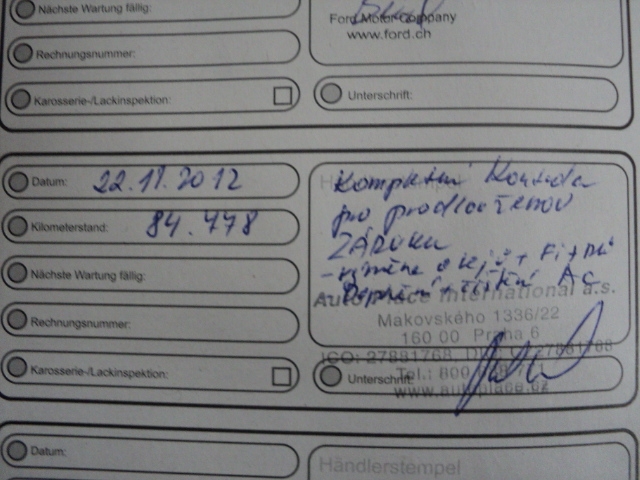 Nächste Wartung fällig:
Ford Motor Company
www.ford.ch
Rechnungsnummer:
Karosserie-/Lackinspektion:
Unterschrift:
Datum: 22.11.2012
Kompletní kontrola
pro prodlouženou
Kilometerstand: 84.478
ZÁRUKU
- výměna oleje + filtrů
Nächste Wartung fällig:
+ čištění AC
Auto Place International a.s.
Makovského 1336/22
Rechnungsnummer:
160 00 Praha 6
IČO: 27881768, DIČ: CZ27881768
Karosserie-/Lackinspektion:
Unterschrift:
Tel.: 800
www.autoplace.cz
Datum:
Händlerstempel